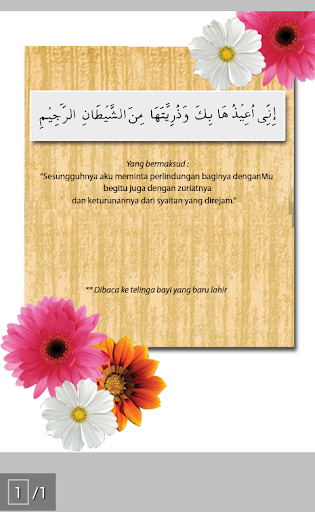 إِنِّى اُعِيْذُ هَا بِكَ وَذُرِيَّتَهَا مِنَ الشَّيْطَانِ الرَّجِيْمِ
Yang bermaksud :
"Sesungguhnya aku meminta perlindungan baginya denganMu
begitu juga dengan zuriatnya
dan keturunannya dari syaitan yang direjam."
** Dibaca ke telinga bayi yang baru lahir
1 /1